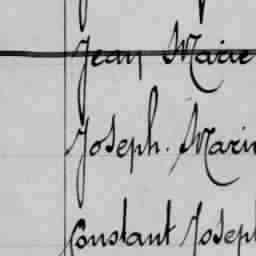 Jean Marie
Joseph. Marie
Constant Joseph